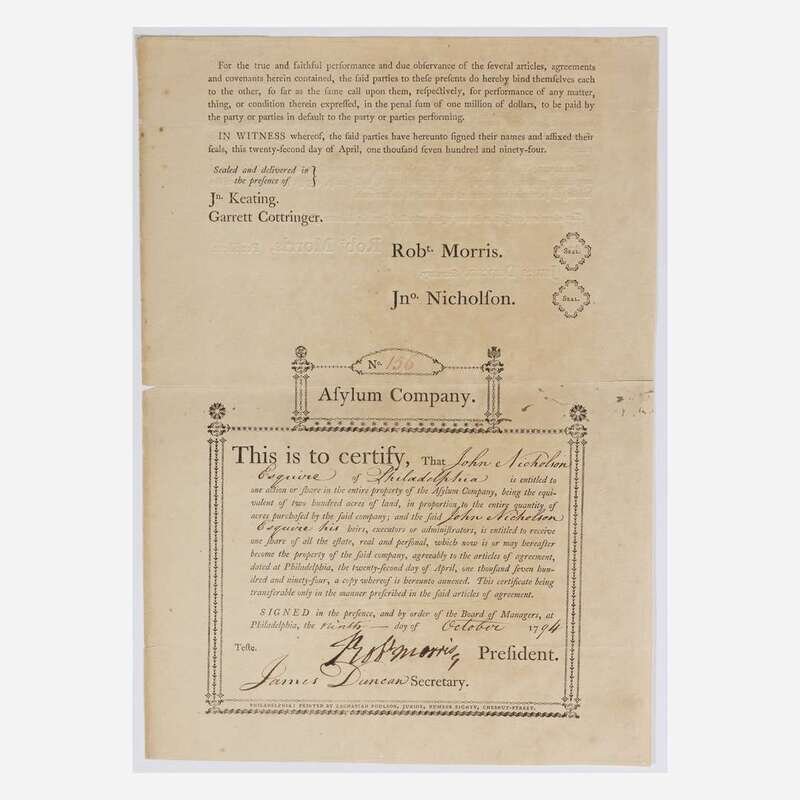 For the true and faithful performance and due obſervance of the ſeveral articles, agreements
and covenants herein contained, the ſaid parties to theſe preſents do hereby bind themſelves each
to the other, ſo far as the ſame call upon them, reſpectively, for performance of any matter,
thing, or condition therein expreſſed, in the penal ſum of one million of dollars, to be paid by
the party or parties in default to the party or parties performing.
IN WITNESS whereof, the ſaid parties have hereunto ſigned their names and affixed their
ſeals, this twenty-ſecond day of April, one thouſand ſeven hundred and ninety-four.
Sealed and delivered in
the preſence of
Jn. Keating.
Garrett Cottringer.
Robt. Morris. SEAL.
Jno. Nicholſon. SEAL.
No. 156
Aſylum Company.
This is to certify, That John Nicholson
Esquire of Philadelphia is entitled to
one action or ſhare in the entire property of the Aſylum Company, being the equi-
valent of two hundred acres of land, in proportion to the entire quantity of
acres purchaſed by the ſaid company; and the ſaid John Nicholson
Esquire his heirs, executors or adminiſtrators, is entitled to receive
one ſhare of all the eſtate, real and perſonal, which now is or may hereafter
become the property of the ſaid company, agreeably to the articles of agreement,
dated at Philadelphia, the twenty-ſecond day of April, one thouſand ſeven hun-
dred and ninety-four, a copy whereof is hereunto annexed. This certificate being
transferable only in the manner preſcribed in the ſaid articles of agreement.
SIGNED in the preſence, and by order of the Board of Managers, at
Philadelphia, the ninth day of October 1794
Teſte. Robt Morris, Preſident.
James Duncan Secretary.
PHILADELPHIA: PRINTED BY ZACHARIAH POULSON, JUNIOR, NUMBER EIGHTY, CHESNUT-STREET.